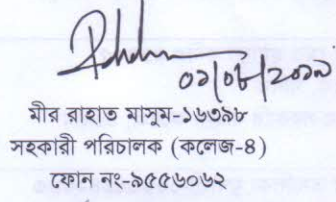 ০১/০৮/২০১৯
মীর রাহাত মাসুম-১৬৩৯৮
সহকারী পরিচালক (কলেজ-৪)
ফোন নং-৯৫৫৬০৬২